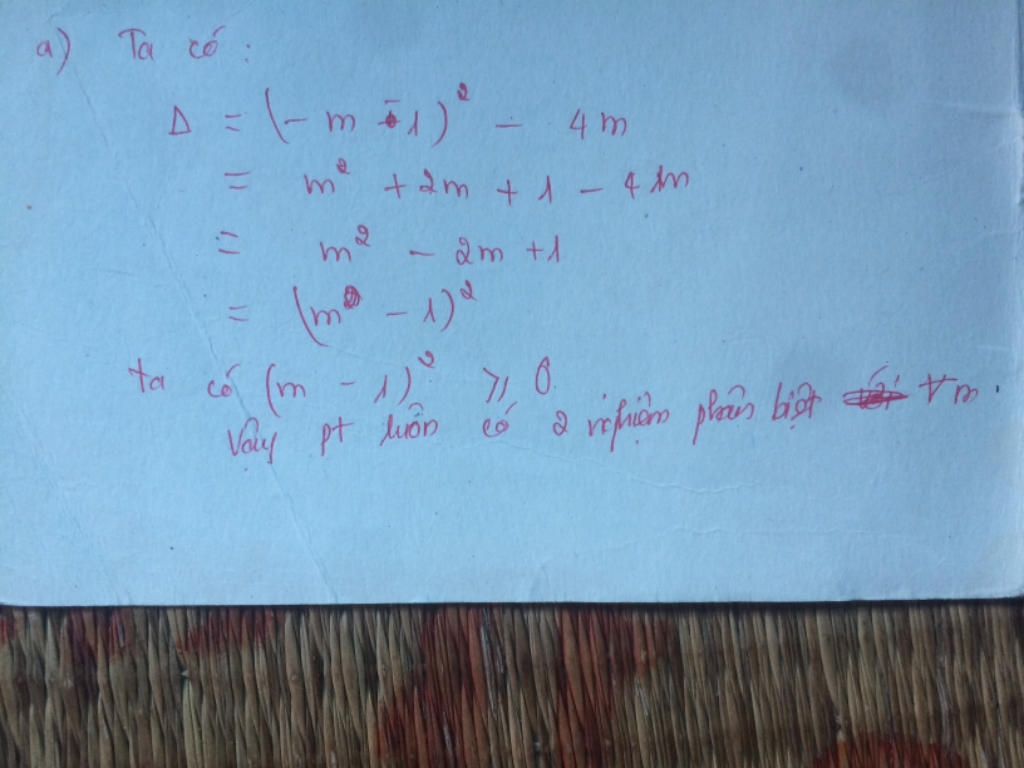 a) Ta có :
Δ = (- m - 1)² - 4m
= m² + 2m + 1 - 4m
= m² - 2m + 1
= (m - 1)²
ta có (m - 1)² ⩾ 0.
Vậy pt luôn có 2 nghiệm phân biệt ∀ m.